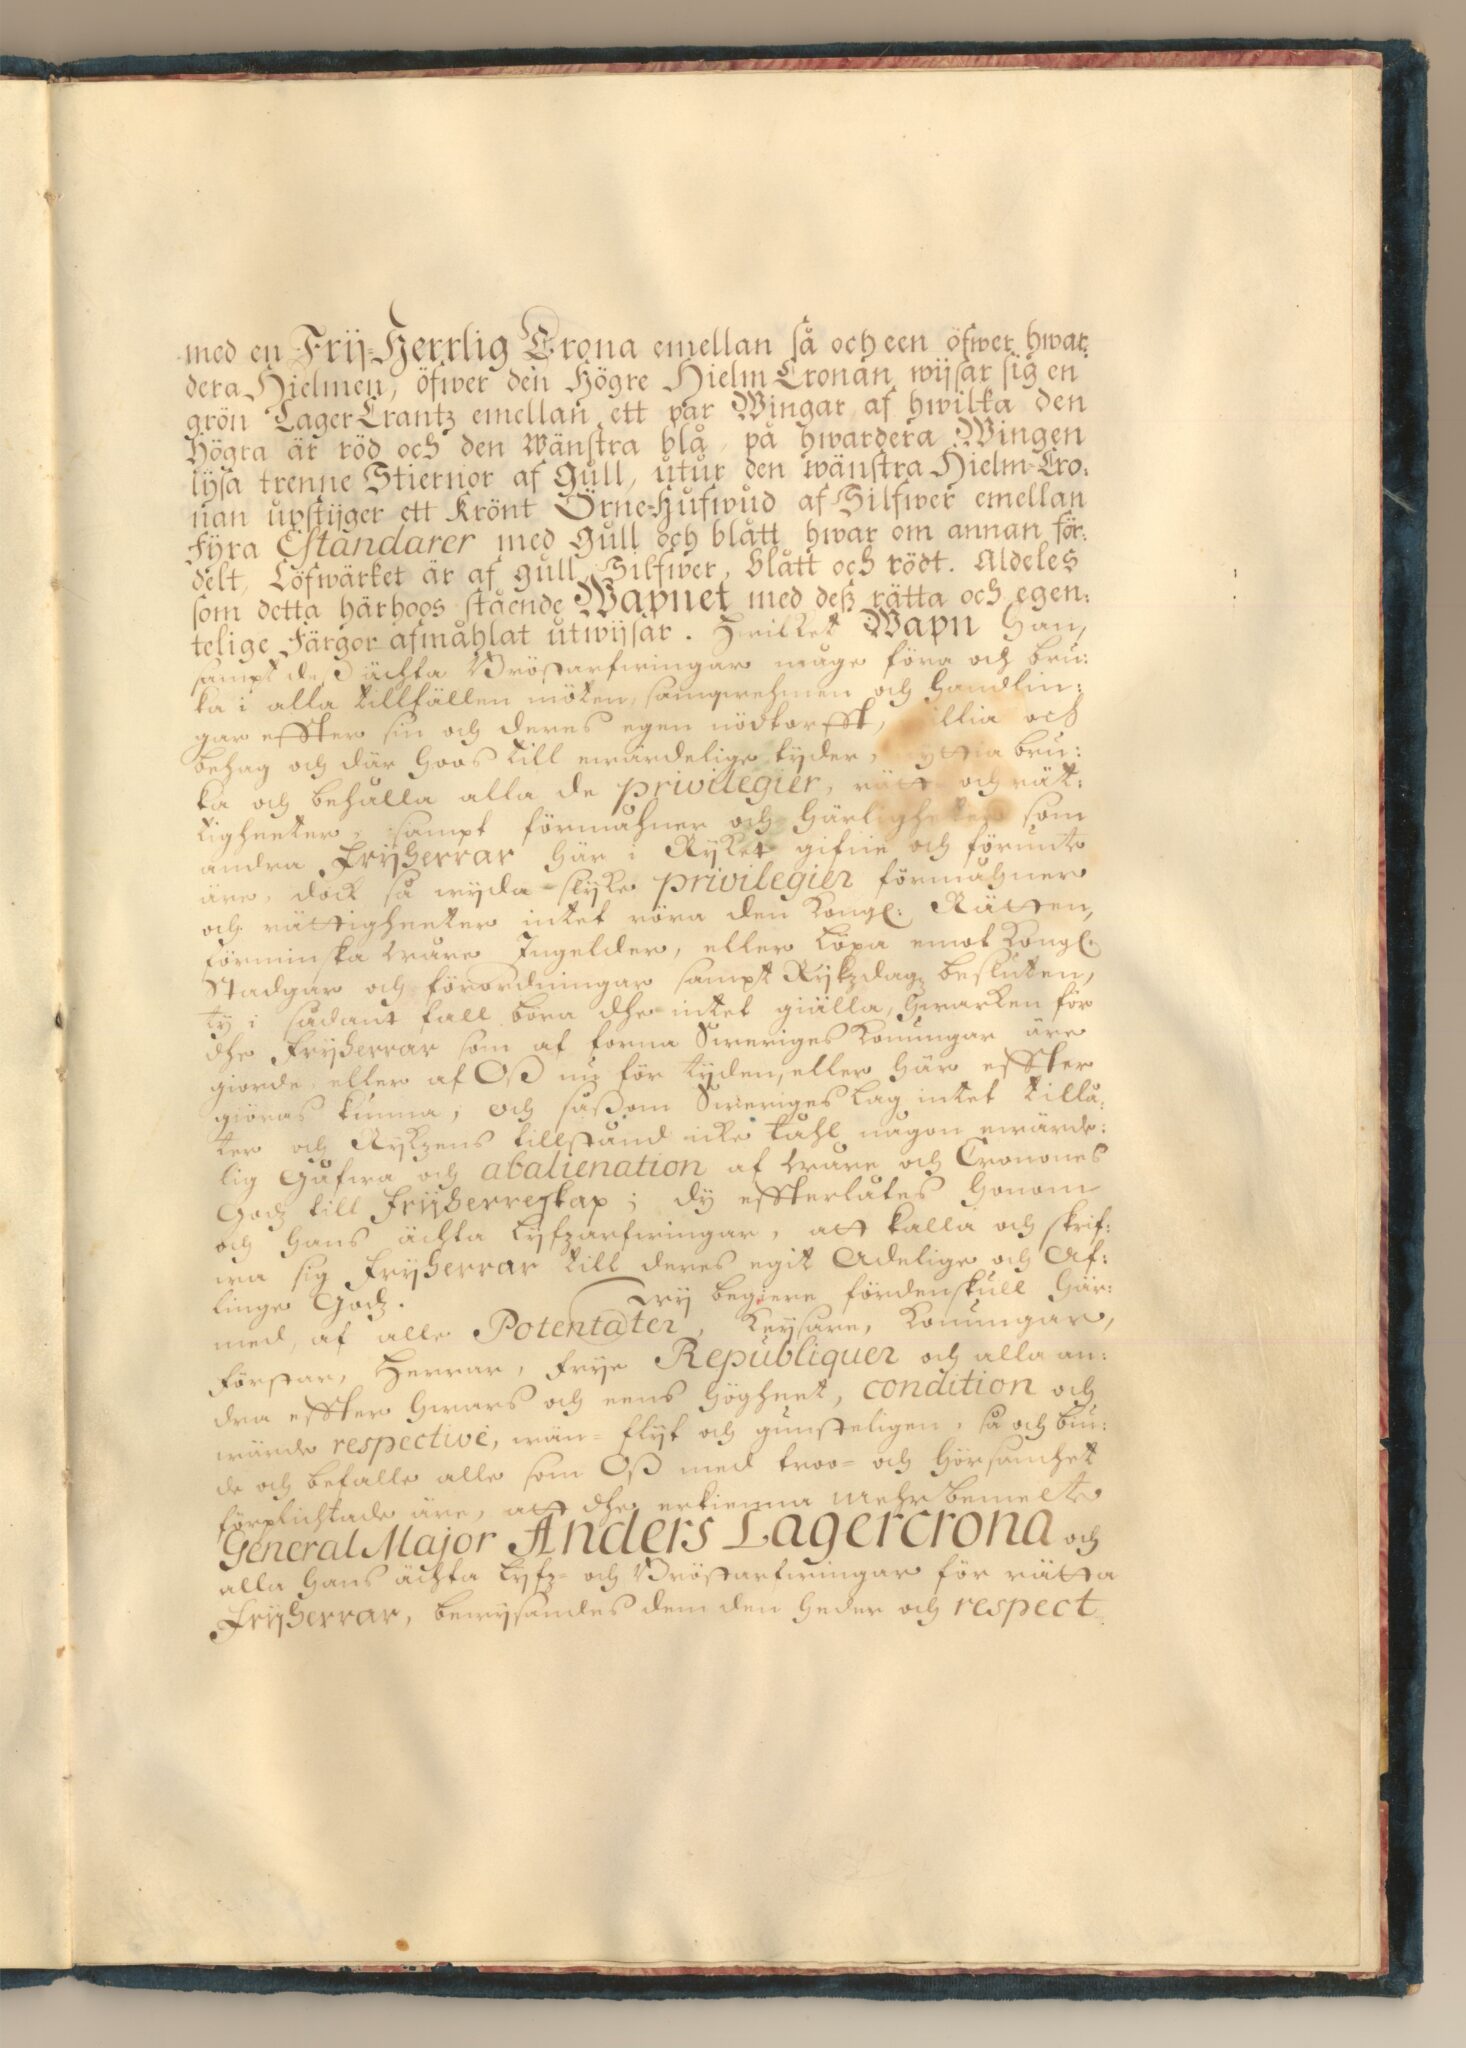 med en Frij-Herrlig Crona emellan så och een öfwer hwar:
dera Hielmen, öfwer den Högre Hielm Cronan wijsar sig en
grön LagerCrantz emellan ett par Wingar af hwilka den
Högra är röd och den Wänstra blå, på hwardera Wingen
lysa trenne Stiernor af Gull, utur den wänstra Hielm-Cro:
nan upstijger ett Krönt Örne-Hufwud af Silfwer emellan
Fyra Estandarer med Gull och blått hwar om annan för:
delt, Löfwärket är af gull, Silfwer, blått och rödt. Aldeles
som detta härhoos stående Wapnet med deß rätta och egen:
telige Färgor afmåhlat utwijsar. Hwilket Wapn Han,
sampt deß ächta Bröstarfwingar måge föra och bru:
ka i alla tillfällen möten, samqwehmen och Handlin:
gar effter sin och deres egen nödtorfft, illia och
behag och där hoos till ewärdelige tyder, yttia bru:
ka och behålla alla de privilegier, rätt och rät:
tigheeter, sampt förmåhner och Härligheter som
andra Frijherrar här i Ryket gifne och förunte
äre, dock så wyda slyke privilegier förmåhner
och rättigheeter intet röra den Kongl: Rätten,
förminska Wåre Ingelder, eller löpa emot Kongl:
Stadgar och förordningar sampt Rykzdagz besluten,
ty i sådant fall böra dhe intet giälla, hwarken för
dhe Frijherrar som af forna Sweriges Konungar äre
giorde, eller af Oß nu för tyden, eller här effter
giöras kunna, och såßom Sweriges lag intet tillå:
ter och Rykzens tillstånd icke tåhl någon ewärde:
lig Gåfwa och abalienation af Wåre och Cronones
Godz till Frijherreskap; dy effterlåtes honom
och hans ächta Lyfzarfwingar, att kalla och skrif:
wa sig Frijherrar till deres egit Adelige och Af:
linge Godz. Wy begiere fördenskull här:
med, af alle Potentater, Keysare, Konungar,
Förstar, Herrar, frye Republiquer och alla an:
dra effter hwars och eens högheet, condition och
wärde respective, wän- flyt och gunsteligen, så och biu:
de och befalle alle som Oß med troo- och hörsamhet
förplichtade äre, att dhe erkienna mehrbemelte
General Major Anders Lagercrona och
alla hans ächta Lyfz- och Bröstarfwingar för rätta
Frijherrar, bewysandes dem den heder och respect